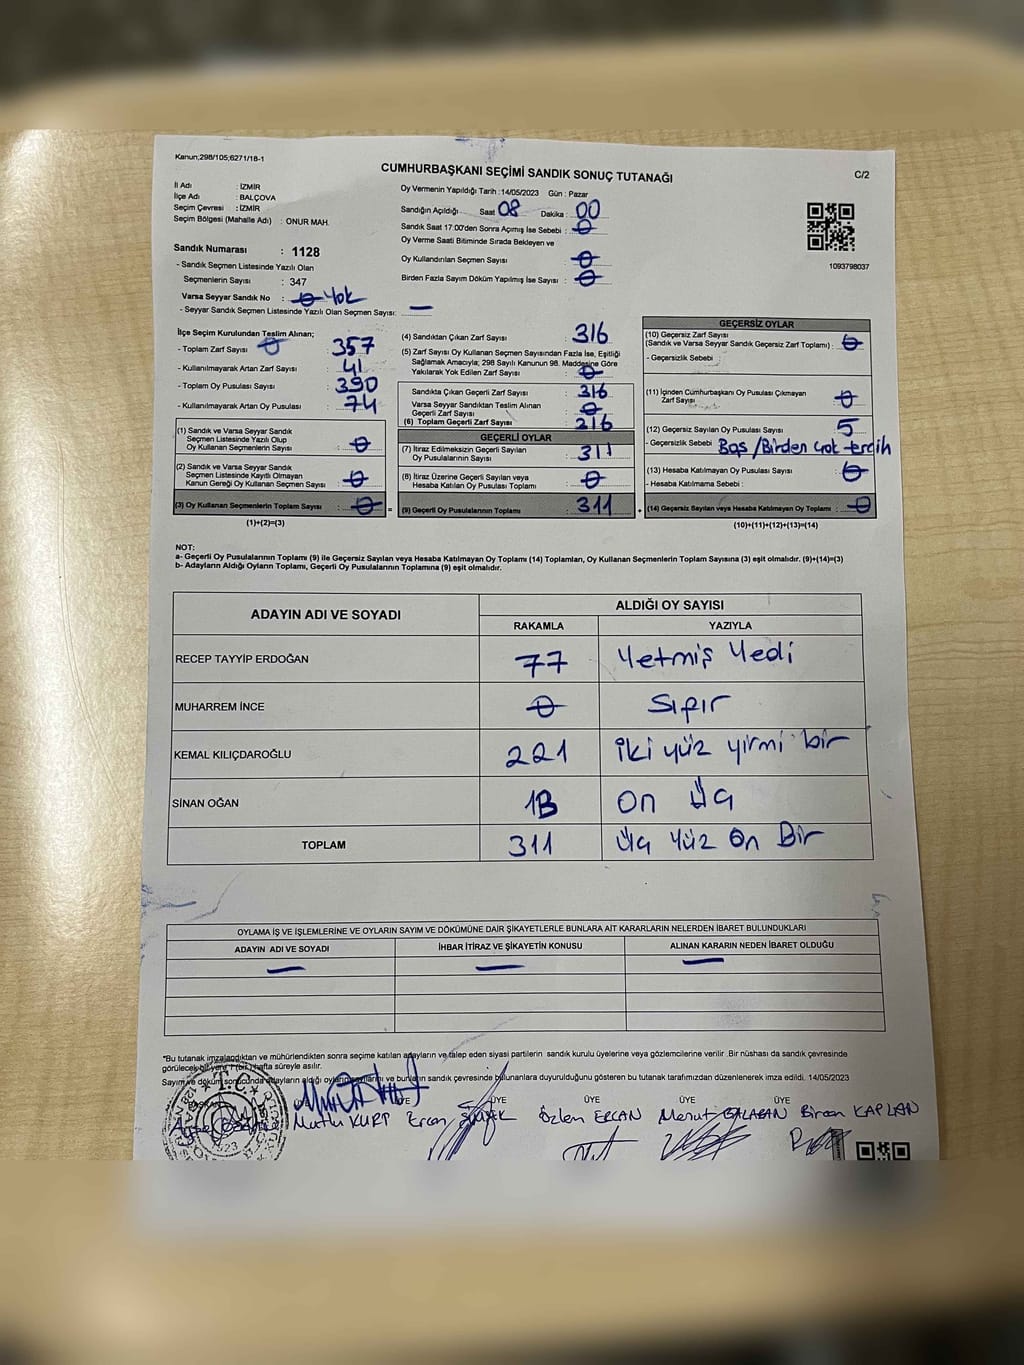 Kanun;298/105;6271/18-1
CUMHURBAŞKANI SEÇİMİ SANDIK SONUÇ TUTANAĞI
C/2
İl Adı : İZMİR
İlçe Adı : BALÇOVA
Seçim Çevresi : İZMİR
Seçim Bölgesi (Mahalle Adı) : ONUR MAH.
Sandık Numarası : 1128
- Sandık Seçmen Listesinde Yazılı Olan
Seçmenlerin Sayısı : 347
Varsa Seyyar Sandık No : 0 Yok
- Seyyar Sandık Seçmen Listesinde Yazılı Olan Seçmen Sayısı: —
Oy Vermenin Yapıldığı Tarih : 14/05/2023 Gün : Pazar
Sandığın Açıldığı Saat 08 Dakika : 00
Sandık Saat 17:00'den Sonra Açımış İse Sebebi : 0
Oy Verme Saati Bitiminde Sırada Bekleyen ve
Oy Kullandırılan Seçmen Sayısı : 0
Birden Fazla Sayım Döküm Yapılmış İse Sayısı : 0
1093798037
İlçe Seçim Kurulundan Teslim Alınan;
- Toplam Zarf Sayısı 0 : 357
- Kullanılmayarak Artan Zarf Sayısı : 41
- Toplam Oy Pusulası Sayısı : 390
- Kullanılmayarak Artan Oy Pusulası : 74
(1) Sandık ve Varsa Seyyar Sandık
Seçmen Listesinde Yazılı Olup
Oy Kullanan Seçmenlerin Sayısı : 0
(2) Sandık ve Varsa Seyyar Sandık
Seçmen Listesinde Kayıtlı Olmayan
Kanun Gereği Oy Kullanan Seçmen Sayısı : 0
(3) Oy Kullanan Seçmenlerin Toplam Sayısı : 0
(1)+(2)=(3)
(4) Sandıktan Çıkan Zarf Sayısı : 316
(5) Zarf Sayısı Oy Kullanan Seçmen Sayısından Fazla İse, Eşitliği
Sağlamak Amacıyla; 298 Sayılı Kanunun 98. Maddesine Göre
Yakılarak Yok Edilen Zarf Sayısı : 0
Sandıkta Çıkan Geçerli Zarf Sayısı : 316
Varsa Seyyar Sandıktan Teslim Alınan
Geçerli Zarf Sayısı : 0
(6) Toplam Geçerli Zarf Sayısı : 216
GEÇERLİ OYLAR
(7) İtiraz Edilmeksizin Geçerli Sayılan
Oy Pusulalarının Sayısı : 311
(8) İtiraz Üzerine Geçerli Sayılan veya
Hesaba Katılan Oy Pusulası Toplamı : 0
= (9) Geçerli Oy Pusulalarının Toplamı : 311
GEÇERSİZ OYLAR
(10) Geçersiz Zarf Sayısı
(Sandık ve Varsa Seyyar Sandık Geçersiz Zarf Toplamı) : 0
- Geçersizlik Sebebi :
(11) İçinden Cumhurbaşkanı Oy Pusulası Çıkmayan
Zarf Sayısı : 0
(12) Geçersiz Sayılan Oy Pusulası Sayısı : 5
- Geçersizlik Sebebi : Boş /Birden çok tercih
(13) Hesaba Katılmayan Oy Pusulası Sayısı : 0
- Hesaba Katılmama Sebebi :
+ (14) Geçersiz Sayılan veya Hesaba Katılmayan Oy Toplamı : 0
(10)+(11)+(12)+(13)=(14)
NOT:
a- Geçerli Oy Pusulalarının Toplamı (9) ile Geçersiz Sayılan veya Hesaba Katılmayan Oy Toplamı (14) Toplamları, Oy Kullanan Seçmenlerin Toplam Sayısına (3) eşit olmalıdır. (9)+(14)=(3)
b- Adayların Aldığı Oyların Toplamı, Geçerli Oy Pusulalarının Toplamına (9) eşit olmalıdır.
ADAYIN ADI VE SOYADI
ALDIĞI OY SAYISI
RAKAMLA YAZIYLA
RECEP TAYYİP ERDOĞAN 77 Yetmiş Yedi
MUHARREM İNCE 0 Sıfır
KEMAL KILIÇDAROĞLU 221 iki yüz yirmi bir
SİNAN OĞAN 13 On Üç
TOPLAM 311 Üç Yüz On Bir
OYLAMA İŞ VE İŞLEMLERİNE VE OYLARIN SAYIM VE DÖKÜMÜNE DAİR ŞİKAYETLERLE BUNLARA AİT KARARLARIN NELERDEN İBARET BULUNDUKLARI
ADAYIN ADI VE SOYADI İHBAR İTİRAZ VE ŞİKAYETİN KONUSU ALINAN KARARIN NEDEN İBARET OLDUĞU
— — —
*Bu tutanak imzalandıktan ve mühürlendikten sonra seçime katılan adayların ve talep eden siyasi partilerin sandık kurulu üyelerine veya gözlemcilerine verilir .Bir nüshası da sandık çevresinde
görülecek bir yere 1 (bir) hafta süreyle asılır.
Sayım ve döküm sonucunda adayların aldığı oyların sayılarını ve bunların sandık çevresinde bulunanlara duyurulduğunu gösteren bu tutanak tarafımızdan düzenlenerek imza edildi. 14/05/2023
T.C.
ÜYE ÜYE ÜYE ÜYE ÜYE
Mutlu KURT Eren Özlem ERCAN Mesut BALABAN Biran KAPLAN